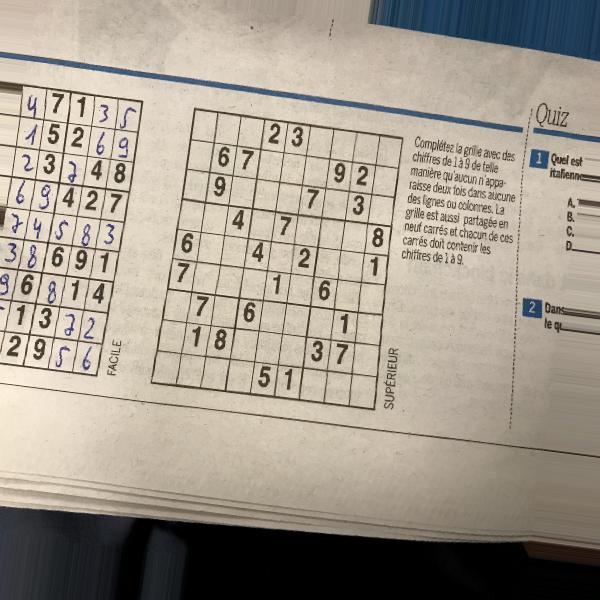 4 7 1 3 5
1 5 2 6 9
2 3 7 4 8
6 9 4 2 7
7 4 5 8 3
3 8 6 9 1
9 6 8 1 4
1 3 7 2
2 9 5 6
FACILE
2 3
6 7 9 2
9 7 3
4 7 8
6 4 2 1
7 1 6
7 6 1
1 8 3 7
5 1
SUPÉRIEUR
Complétez la grille avec des
chiffres de 1 à 9 de telle
manière qu'aucun n'appa-
raisse deux fois dans aucune
des lignes ou colonnes. La
grille est aussi partagée en
neuf carrés et chacun de ces
carrés doit contenir les
chiffres de 1 à 9.
Quiz
1 Quel est
italienne
A.
B.
C.
D.
2 Dans
le